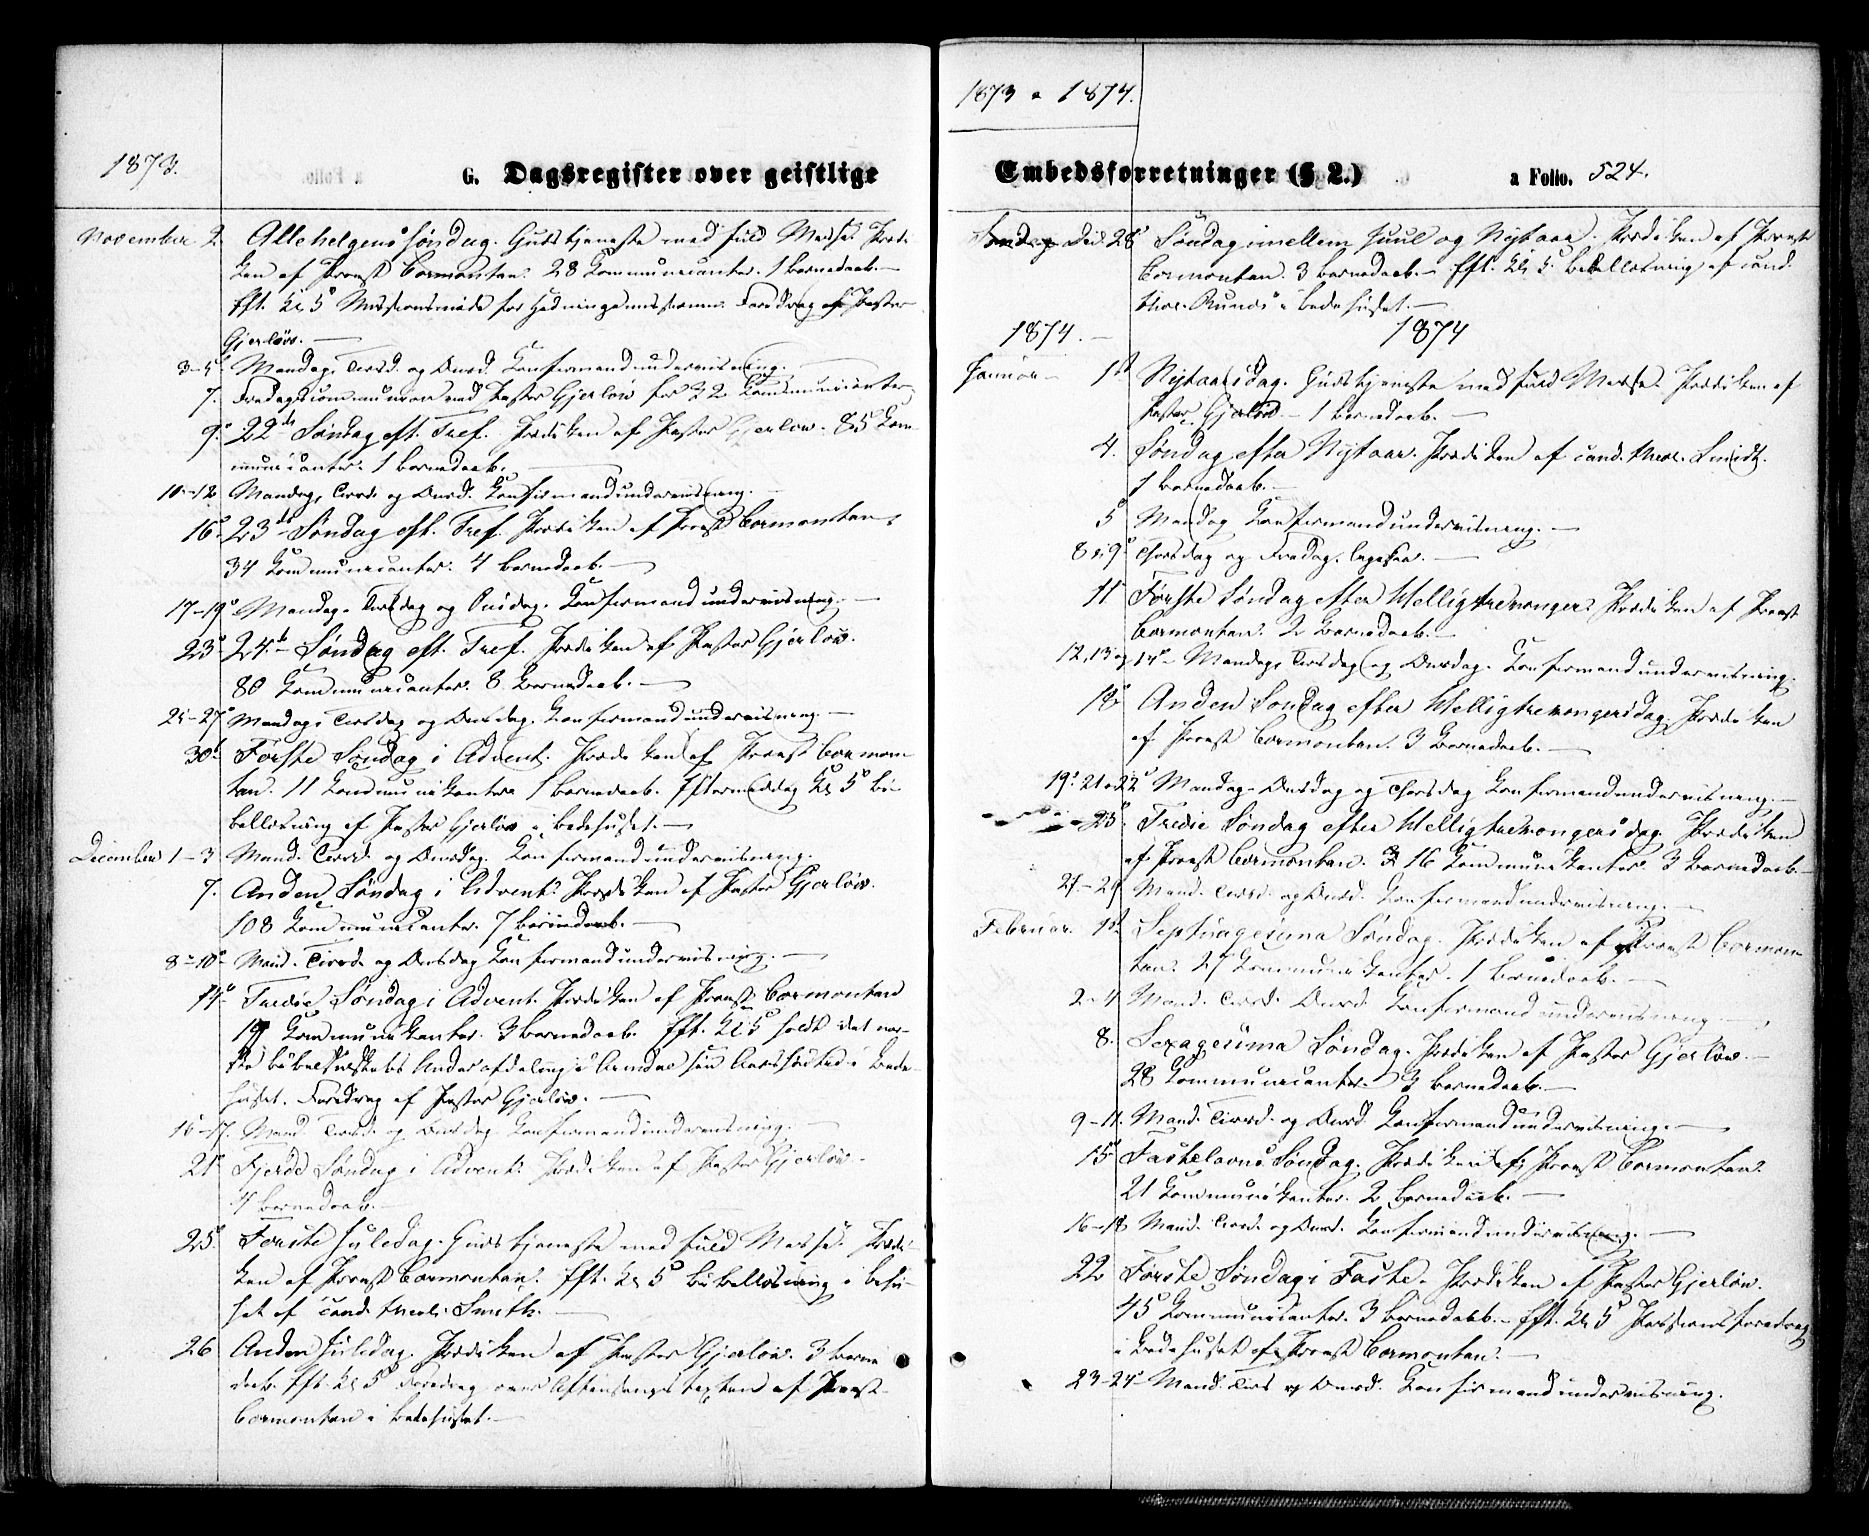 1873.
G. Dagsregister over geistlige
November 2. Allehelgens søndag. Gudstjeneste med fuld Messe. Prædi-
ken af Provst Cormontan. 28 Communicanter. 1 barnedaab.—
Eft. Kl 5 Missionsmøde for Hedningemissionen. Foredrag af Pastor
Gjerløw.—
3–5 Mandag, Tirsd. og Onsd. Konfirmandundervisning.
7. Fredagscommunion ved Pastor Gjerløw for 32 Communicanter,
9. 22de Søndag eft. Tref. Prædiken af Pastor Gjerløw. 85 Com-
municanter. 1 barnedaab.—
10–12 Mandag, Tirsd. og Onsd. Konfirmandundervisning.—
16. 23de Søndag eft. Tref. Prædiken af Provst Cormontan,
34 Communicanter. 4 barnedaab.—
17–19. Mandag, Tirsdag og Onsdag. Konfirmandundervisning.—
23. 24de Søndag eft. Tref. Prædiken af Pastor Gjerløw.
80 Communicanter. 8 Barnedaab.—
25–27 Mandag, Tirsdag og Onsdag. Konfirmandundervisning.—
30. Første Søndag i Advent. Prædiken af Provst Cormon-
tan. 11 Kommunikanter 1 barnedaab. Eftermiddag Kl 5 Bi-
bellæsning af Pastor Gjerløw i Bedehuset.—
December 1–3 Mand. Tirsd. og Onsdag. Konfirmandundervisning.
7. Anden Søndag i Advent. Prædiken af Pastor Gjerløw.
108 Communicanter. 7 barnedaab.—
8–10. Mand. Tirsd. og Onsdag Konfirmandundervisning.—
14. Tredie Søndag i Advent. Prædiken af Provst Cormontan
19 Kommunikanter. 3 barnedaab. Eft. Kl 5 holdt det nor-
ske bibelselskabs Underafdeling i Arendal sin Aarshøitid i Bede-
huset. Foredrag af Pastor Gjerløw.—
16–17. Mand. Tirsd. og Onsdag Konfirmandundervisning.—
21. Fjerde Søndag i Advent. Prædiken af Pastor Gjerløw.
4 barnedaab.—
25. Første Juledag. Gudstjeneste med fuld Messe. Prædi-
ken af Provst Cormontan. Eft. Kl 5 Bibellæsning i behu-
set af cand. theol. Smith.—
26 Anden Juledag. Prædiken af Pastor Gjerløw. 3 barne
daab. Eft. Kl 5 Foredrag over Aftensangstexten af Provst
Cormontan i Bedehuset.—
1873 – 1874.
Embedsforretninger (§ 2.) a Folio. 524.
Dec. 28 Søndag imellem Juul og Nytaar. Prædiken af Provst
Cormontan. 3 barnedaab.— Eft. Kl 5. Bibellæsning af cand.
theol. i bedehuset.—
1874.— 1874
Januar 1st Nytaarsdag. Gudstjeneste med fuld Messe. Prædiken af
Pastor Gjerløw.— 1 barnedaab.—
4. Søndag efter Nytaar. Prædiken af cand. theol. Smidt.
1 barnedaab.—
5 Mandag Konfirmandundervisning.—
8 & 9 Thorsdag og Fredag. ligesaa.—
11 Første Søndag efter Helligtrekonger. Prædiken af Provst
Cormontan. 2 Barnedaab.—
12, 13 og 14. Mandag, Tirsdag og Onsdag. Konfirmandundervisning.
18 Anden Søndag efter Helligtrekongersdag. Prædiken
af Provst Cormontan. 3 Barnedaab.—
19. 21 & 22 Mandag, Onsdag og Thorsdag Konfirmandundervisning.—
25. Tredie Søndag efter Helligtrekongersdag. Prædiken
af Provst Cormontan. 16 Kommunikanter. 3 Barnedaab.—
27–29 Mand. Tirsd. og Onsd. Konfirmandundervisning.—
Februar. 1st Septuagesima Søndag. Prædiken af Provst Cormon-
tan. 27 Kommunikanter. 1 barnedaab.—
2–4 Mand. Tirsd. Onsd. Konfirmandundervisning.—
8. Sexagesima Søndag. Prædiken af Pastor Gjerløw.—
28 Kommunicanter. 3 barnedaab.—
9–11. Mand. Tirsd. og Onsd. Konfirmandundervisning.—
15 Fastelavns Søndag. Prædiken af Provst Cormontan.
21 Kommunikanter. 2 barnedaab.—
16–18 Mand. Tirsd. og Onsd. Konfirmandundervisning.—
22 Første Søndag i Faste. Prædiken af Pastor Gjerløw.
45 Kommunicanter. 3 barnedaab.— Eft. Kl 5 Passionsforedrag
i Bedehuset af Provst Cormontan.—
23–25 Mand. Tirs og Onsd. Konfirmandundervisning.